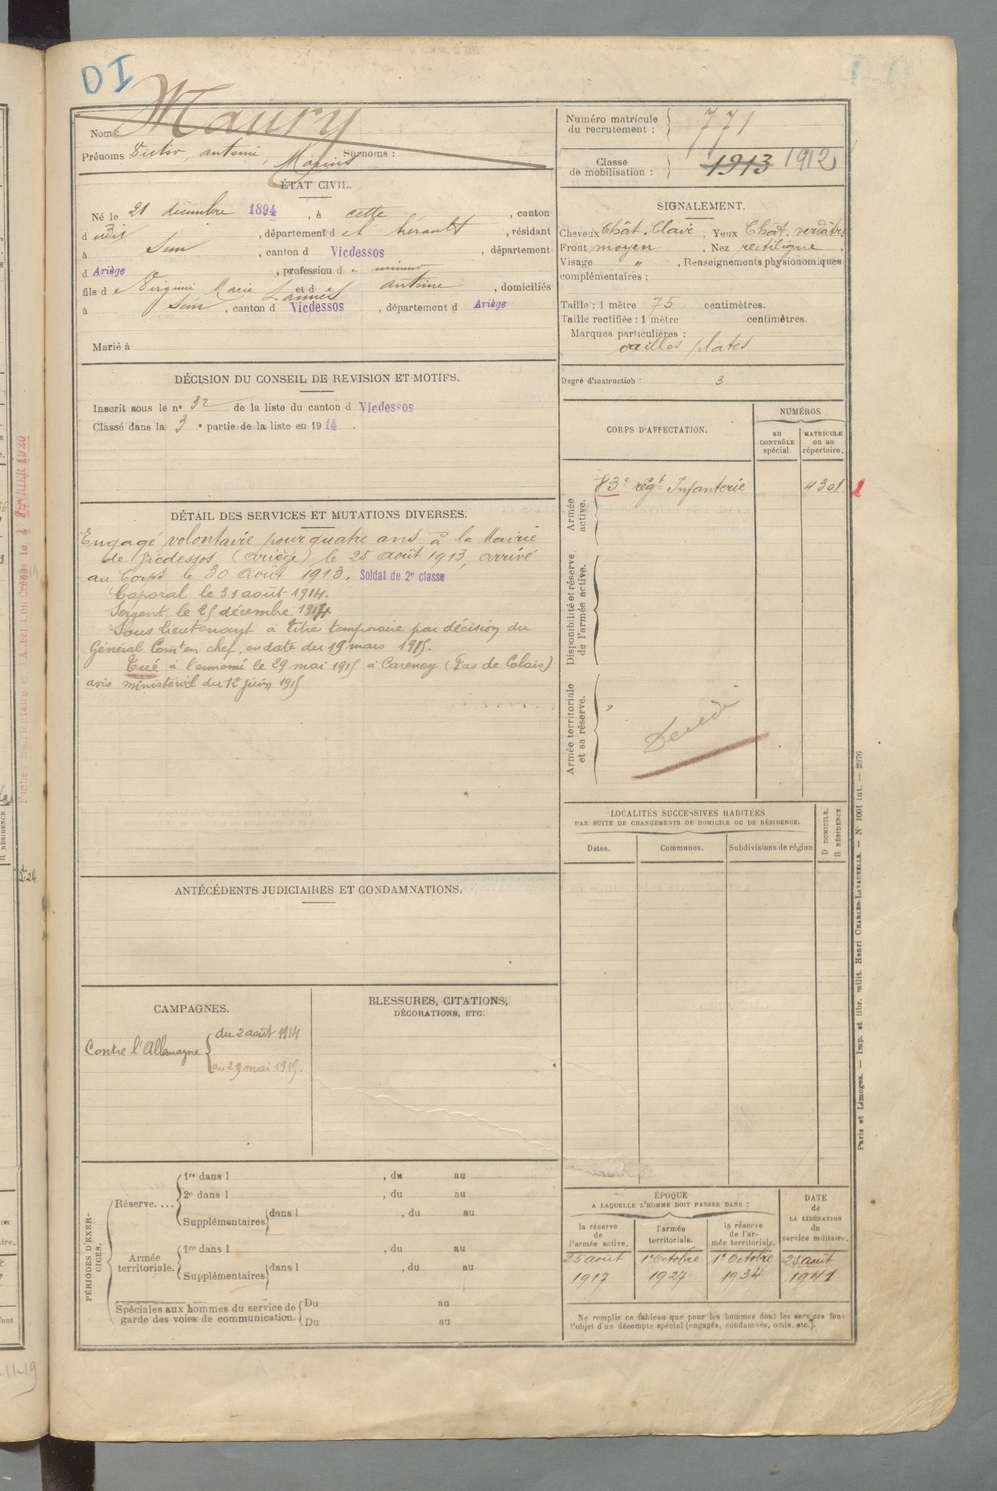 DI
Nom Maury
Prénoms Victor, antoine, Marius Surnoms :
Numéro matricule du recrutement : 771
Classe de mobilisation : 1913 1912
ÉTAT CIVIL.
Né le 21 décembre 1894, à cette, canton
d udit, département d el hérault, résidant
à Sem, canton d Vicdessos, département
d Ariège, profession d e mineur
fils d e Virginie Marie Lannes et d antoine, domiciliés
à Sem, canton d Vicdessos, département d Ariège
Marié à
SIGNALEMENT.
Cheveux Chât. Clair, Yeux Chât. verdâtre
Front moyen, Nez rectiligne,
Visage ", Renseignements physionomiques
complémentaires :
Taille : 1 mètre 75 centimètres.
Taille rectifiée : 1 mètre centimètres.
Marques particulières :
oreilles plates
Degré d'instruction : 3
DÉCISION DU CONSEIL DE REVISION ET MOTIFS.
Inscrit sous le n° 32 de la liste du canton d Vicdessos
Classé dans la 3e partie de la liste en 1914.
CORPS D'AFFECTATION.
NUMÉROS
au CONTRÔLE spécial.
MATRICULE ou au répertoire.
Armée active.
83e régt Infanterie 4301 1
Disponibilité et réserve de l'armée active.
Armée territoriale et sa réserve.
Décédé
DÉTAIL DES SERVICES ET MUTATIONS DIVERSES.
Engagé volontaire pour quatre ans à la Mairie
de Vicdessos (Ariège) le 25 août 1913, arrivé
au Corps le 30 août 1913. Soldat de 2e classe
Caporal le 31 août 1914.
Sergent le 25 décembre 1914.
Sous Lieutenant à titre temporaire par décision du
Général Comt en chef, en date du 19 mars 1915.
Tué à l'ennemi le 29 mai 1915 à Carency (Pas de Calais)
avis ministériel du 12 juin 1915
LOCALITÉS SUCCESSIVES HABITÉES
PAR SUITE DE CHANGEMENTS DE DOMICILE OU DE RÉSIDENCE.
Dates.
Communes.
Subdivisions de région
D DOMICILE.
R RÉSIDENCE.
ANTÉCÉDENTS JUDICIAIRES ET CONDAMNATIONS.
CAMPAGNES.
Contre l'Allemagne { du 2 août 1914
au 29 mai 1915.
BLESSURES, CITATIONS,
DÉCORATIONS, ETC.
PÉRIODES D'EXERCICES.
Réserve....
1re dans l , du au
2e dans l , du au
Supplémentaires dans l , du au
Armée territoriale.
1re dans l , du au
Supplémentaires dans l , du au
Spéciales aux hommes du service de garde des voies de communication.
Du au
Du au
ÉPOQUE
A LAQUELLE L'HOMME DOIT PASSER DANS :
la réserve de l'armée active.
l'armée territoriale.
la réserve de l'armée territoriale.
DATE de LA LIBÉRATION du service militaire.
25 août 1917
1er Octobre 1927
1er Octobre 1934
25 août 1941
Ne remplir ce tableau que pour les hommes dont les services font
l'objet d'un décompte spécial (engagés, condamnés, omis, etc.).
Paris et Limoges. — Imp. et libr. milit. Henri CHARLES-LAVAUZELLE. — N° 1001 int. — 2076